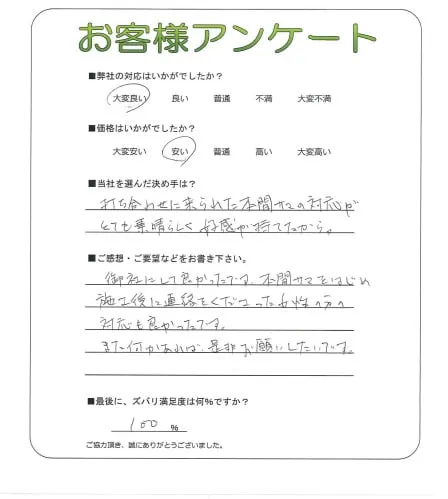 お客様アンケート
■弊社の対応はいかがでしたか？
大変良い 良い 普通 不満 大変不満
■価格はいかがでしたか？
大変安い 安い 普通 高い 大変高い
■当社を選んだ決め手は？
打ち合わせに来られた本間サマの対応が
とても素晴らしく好感が持てたから。
■ご感想・ご要望などをお書き下さい。
御社にして良かったです。本間サマをはじめ
施工後に連絡をくださった女性の方の
対応も良かったです。
また何かあれば、是非お願いしたいです。
■最後に、ズバリ満足度は何％ですか？
100 %
ご協力頂き、誠にありがとうございました。